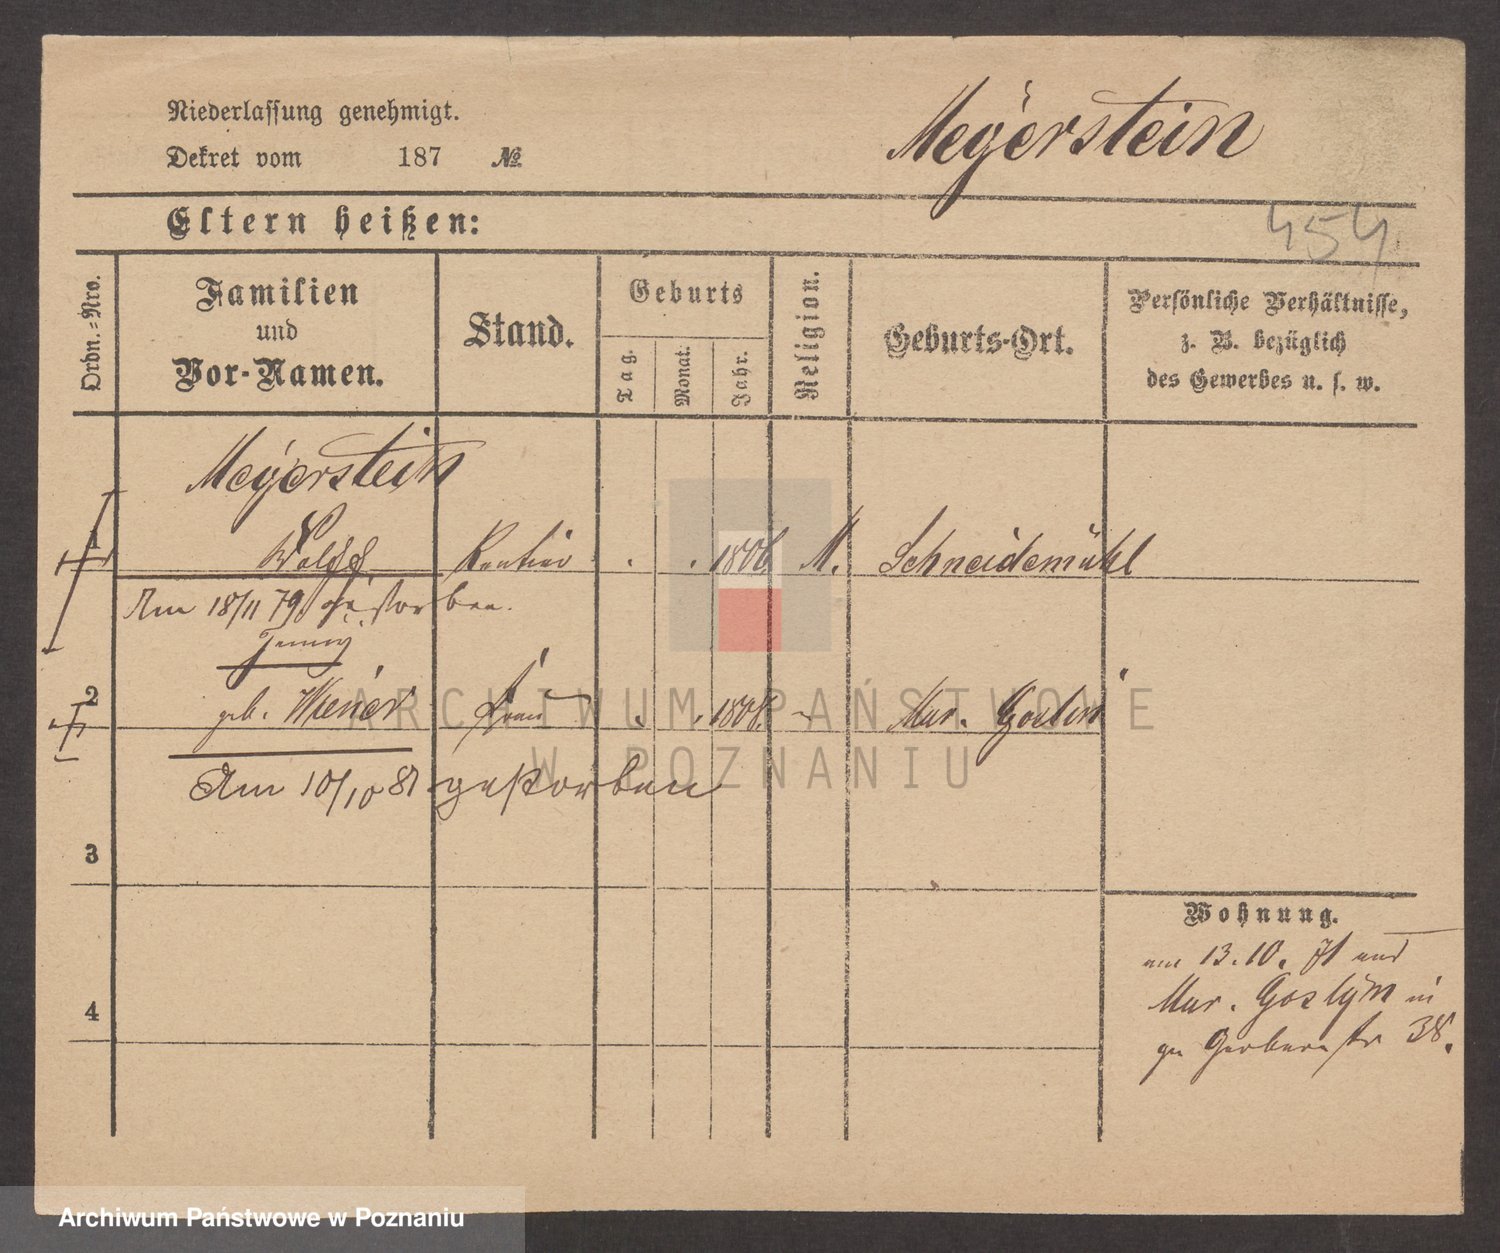 Niederlassung genehmigt.
Dekret vom 187 №
Meyerstein
Eltern heißen:
454
Ordn.-Nro.
Familien
und
Vor-Namen.
Stand.
Geburts
Tag.
Monat.
Jahr.
Religion.
Geburts-Ort.
Persönliche Verhältnisse,
z. B. bezüglich
des Gewerbes u. s. w.
Meyerstein
1 Wolff Rentier 1806 M. Schneidemühl
Am 18/11 79 gestorben.
Jenny
2 geb. Wiener Frau 1808 Mur. Goslin
Am 10/10 81 gestorben
3
Wohnung.
am 13.10. 71 aus
4
Mur. Goslyn in
gr Gerberstr 38.
ARCHIWUM PAŃSTWOWE
W POZNANIU
Archiwum Państwowe w Poznaniu